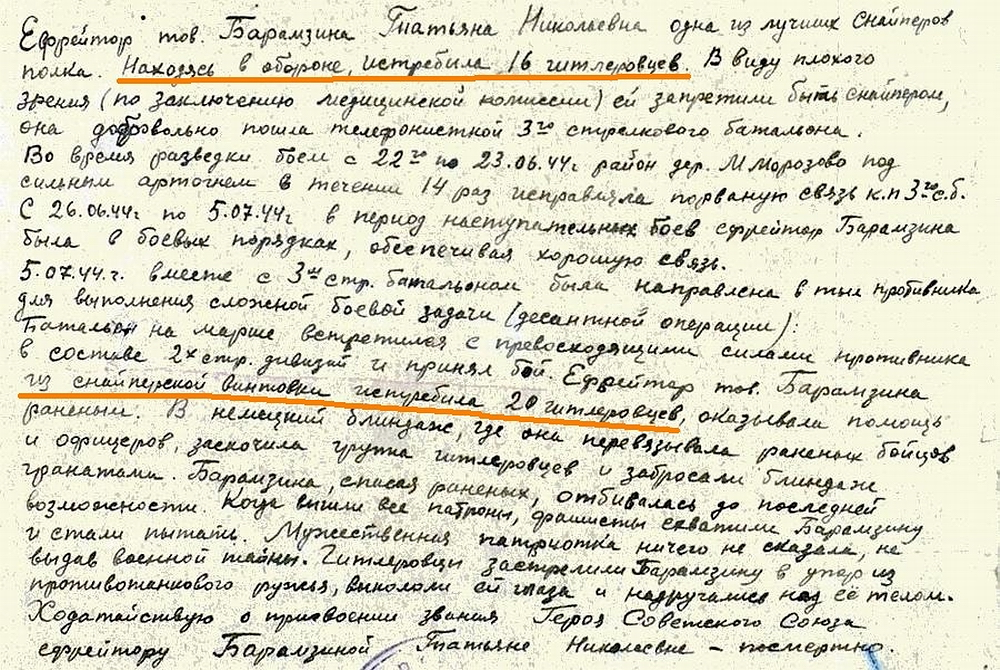 Ефрейтор тов. Барамзина Татьяна Николаевна одна из лучших снайперов
полка. Находясь в обороне, истребила 16 гитлеровцев. В виду плохого
зрения (по заключению медицинской комиссии) ей запретили быть снайпером,
она добровольно пошла телефонисткой 3го стрелкового батальона.
Во время разведки боем с 22го по 23.06.44г район дер. М Морозово под
сильным артогнем в течении 14 раз исправляла порваную связь к.п 3го с.б.
С 26.06.44г по 5.07.44г в период наступательных боев ефрейтор Барамзина
была в боевых порядках, обеспечивая хорошую связь.
5.07.44.г. вместе с 3им стр. батальоном была направлена в тыл противника
для выполнения сложной боевой задачи (десантной операции):
Батальон на марше встретился с превосходящими силами противника
в составе 2х стр. дивизий и принял бой. Ефрейтор тов. Барамзина
из снайперской винтовки истребила 20 гитлеровцев, оказывала помощь
раненым. В немецкий блиндаж, где она перевязывала раненых бойцов
и офицеров, заскочила группа гитлеровцев и забросали блиндаж
гранатами. Барамзина, спасая раненых, отбивалась до последней
возможности. Когда вышли все патроны, фашисты схватили Барамзину
и стали пытать. Мужественная патриотка ничего не сказала, не
выдав военной тайны. Гитлеровцы застрелили Барамзину в упор из
противотанкового ружья, выкололи ей глаза и надругались над её телом.
Ходатайствую о присвоении звания Героя Советского Союза
ефрейтору Барамзиной Татьяне Николаевне – посмертно.